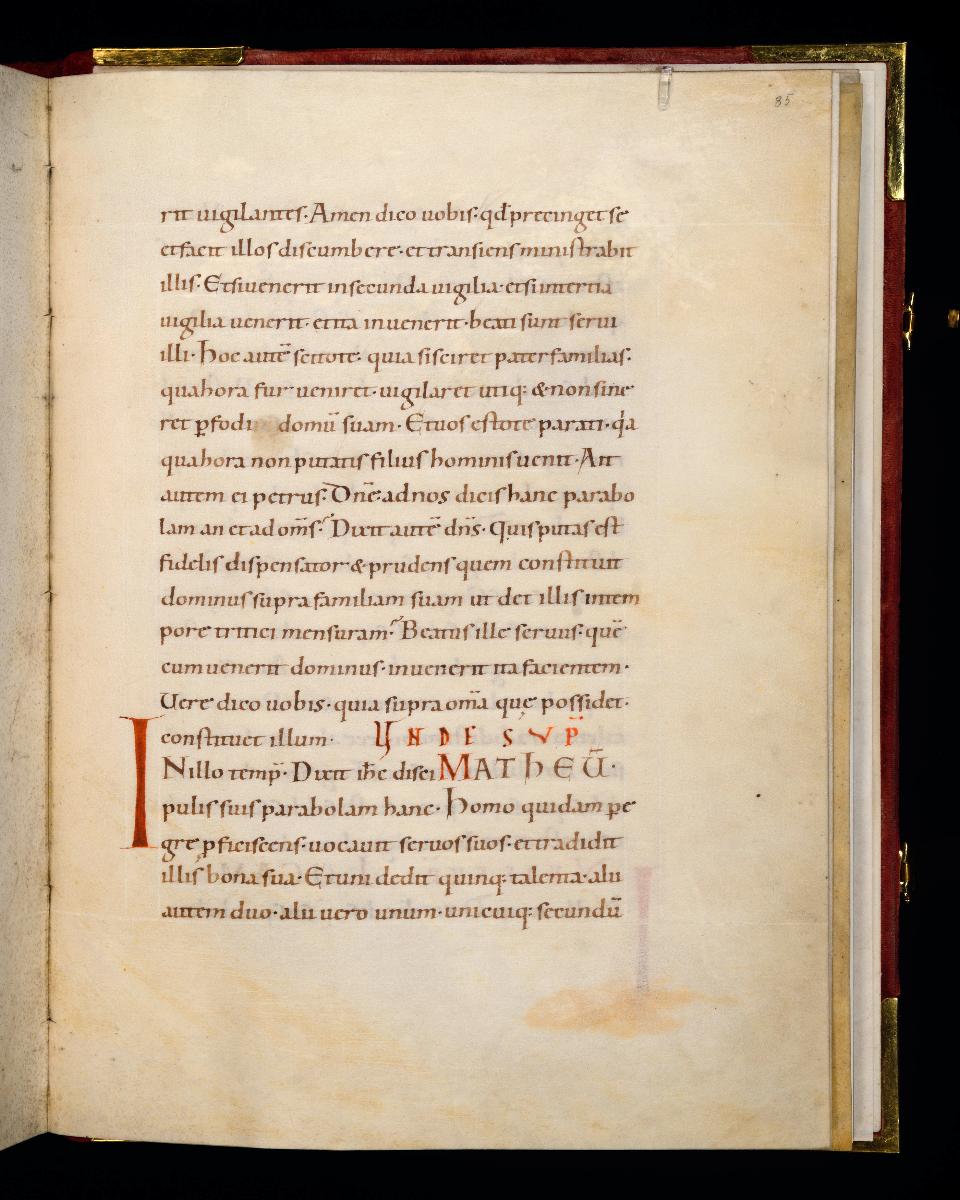 85
rit uigilantes. Amen dico uobis. qd̄ precinget se
et facit illos discumbere. et transiens ministrabit
illis. Et si uenerit in secunda uigilia. et si in tertia
uigilia uenerit. et ita inuenerit. beati sunt serui
illi. hoc autē scitote. quia si sciret pater familias.
qua hora fur ueniret. uigilaret utiq: & non sine
ret ꝑfodi domū suam. Et uos estote parati. q̇a
qua hora non putatis filius hominis uenit. Ait
autem ei petrus. Dn̄e. ad nos dicis hanc parabo
lam an et ad om̄s. Dixit autē dn̄s. Quis putas est
fidelis dispensator & prudens quem constituit
dominus supra familiam suam ut det illis in tem
pore tritici mensuram. Beatus ille seruus. quē
cum uenerit dominus. inuenerit ita facientem.
Uere dico uobis. quia supra om̄a quę possidet.
constituet illum. UNDE SVP̄
IN illo temp̄. Dixit ih̄c disci MATHEŪ.
pulis suis parabolam hanc. homo quidam ꝑe
gre ꝓficiscens. uocauit seruos suos. et tradidit
illis bona sua. Et uni dedit quinq: talenta. alii
autem duo. alii uero unum. unicuiq: secundū